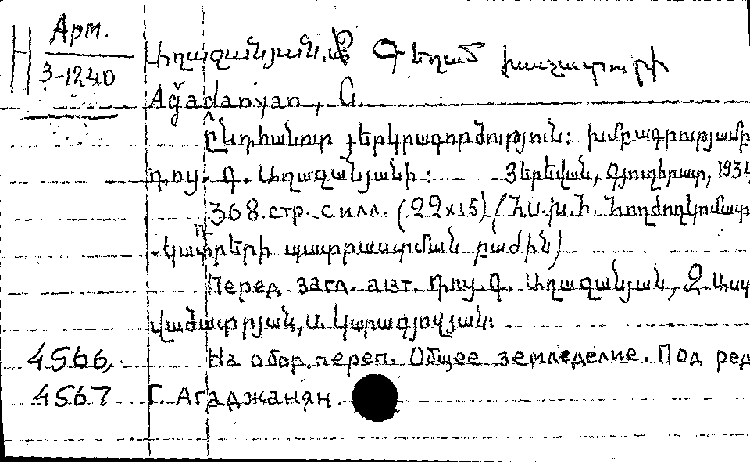 Арм.
3-1240
Աղաջանյան, Գ Գեղամ Խաչատուրի
Ağadanyan, G.
Ընդհանուր յերկրագործություն: Խմբագրությամբ
դոց. Գ. Աղաջանյանի: Յերեվան, Գյուղհրատ, 1934
368 стр. с илл. (22x15) (ՀԽՍՀ Հողժողկոմատ
կադրերի պատրաստման բաժին)
Перед загл. авт. դոց. Գ. Աղաջանյան, Զ. Աստ
վածատրյան, Ա. Կարագյոզյան.
4566, На обор. переп. Общее земледелие. Под ред
4567 Г. Агаджанян.